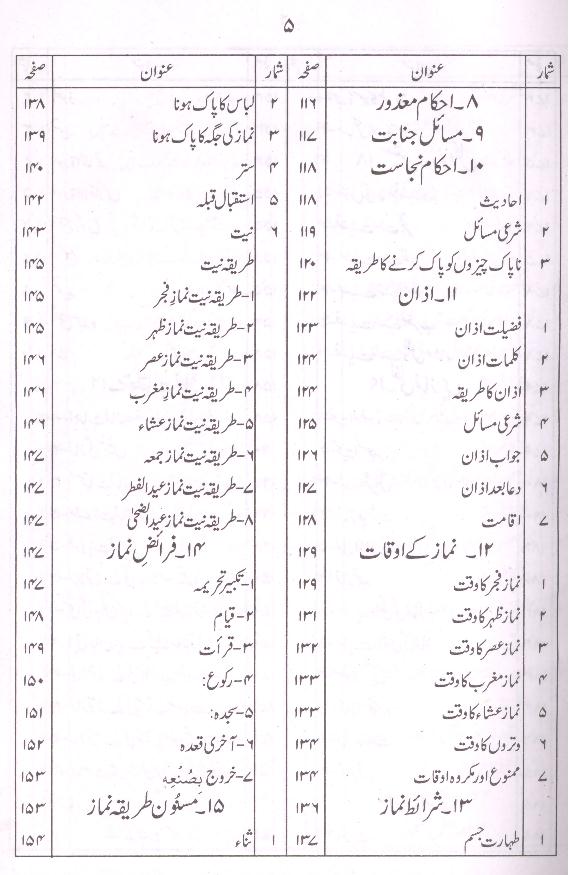 ۵
شمار عنوان صفحہ
۸۔ احکام معذور ۱۱۶
۹۔ مسائل جنابت ۱۱۷
۱۰۔ احکام نجاست ۱۱۸
۱ احادیث ۱۱۸
۲ شرعی مسائل ۱۱۹
۳ ناپاک چیزوں کو پاک کرنے کا طریقہ ۱۲۰
۱۱۔ اذان ۱۲۲
۱ فضیلت اذان ۱۲۳
۲ کلمات اذان ۱۲۴
۳ اذان کا طریقہ ۱۲۴
۴ شرعی مسائل ۱۲۵
۵ جواب اذان ۱۲۶
۶ دعا بعد اذان ۱۲۷
۷ اقامت ۱۲۸
۱۲۔ نماز کے اوقات ۱۲۹
۱ نماز فجر کا وقت ۱۲۹
۲ نماز ظہر کا وقت ۱۳۱
۳ نماز عصر کا وقت ۱۳۲
۴ نماز مغرب کا وقت ۱۳۳
۵ نماز عشاء کا وقت ۱۳۳
۶ وتروں کا وقت ۱۳۴
۷ ممنوع اور مکروہ اوقات ۱۳۴
۱۳۔ شرائط نماز ۱۳۶
۱ طہارت جسم ۱۳۷
شمار عنوان صفحہ
۲ لباس کا پاک ہونا ۱۳۸
۳ نماز کی جگہ کا پاک ہونا ۱۳۹
۴ ستر ۱۴۰
۵ استقبال قبلہ ۱۴۲
۶ نیت ۱۴۳
طریقہ نیت ۱۴۵
۱- طریقہ نیت نمازِ فجر ۱۴۵
۲- طریقہ نیت نماز ظہر ۱۴۵
۳- طریقہ نیت نماز عصر ۱۴۶
۴- طریقہ نیت نمازِ مغرب ۱۴۶
۵- طریقہ نیت نماز عشاء ۱۴۶
۶- طریقہ نیت نماز جمعہ ۱۴۷
۷- طریقہ نیت نماز عید الفطر ۱۴۷
۸- طریقہ نیت نماز عید الضحیٰ ۱۴۷
۱۴۔ فرائضِ نماز ۱۴۷
۱- تکبیر تحریمہ ۱۴۷
۲- قیام ۱۴۸
۳- قرأت ۱۴۹
۴- رکوع: ۱۵۰
۵- سجدہ: ۱۵۱
۶- آخری قعدہ ۱۵۲
۷- خروج بِصُنْعِہٖ ۱۵۳
۱۵۔ مسنُون طریقہ نماز ۱۵۳
۱ ثناء ۱۵۴